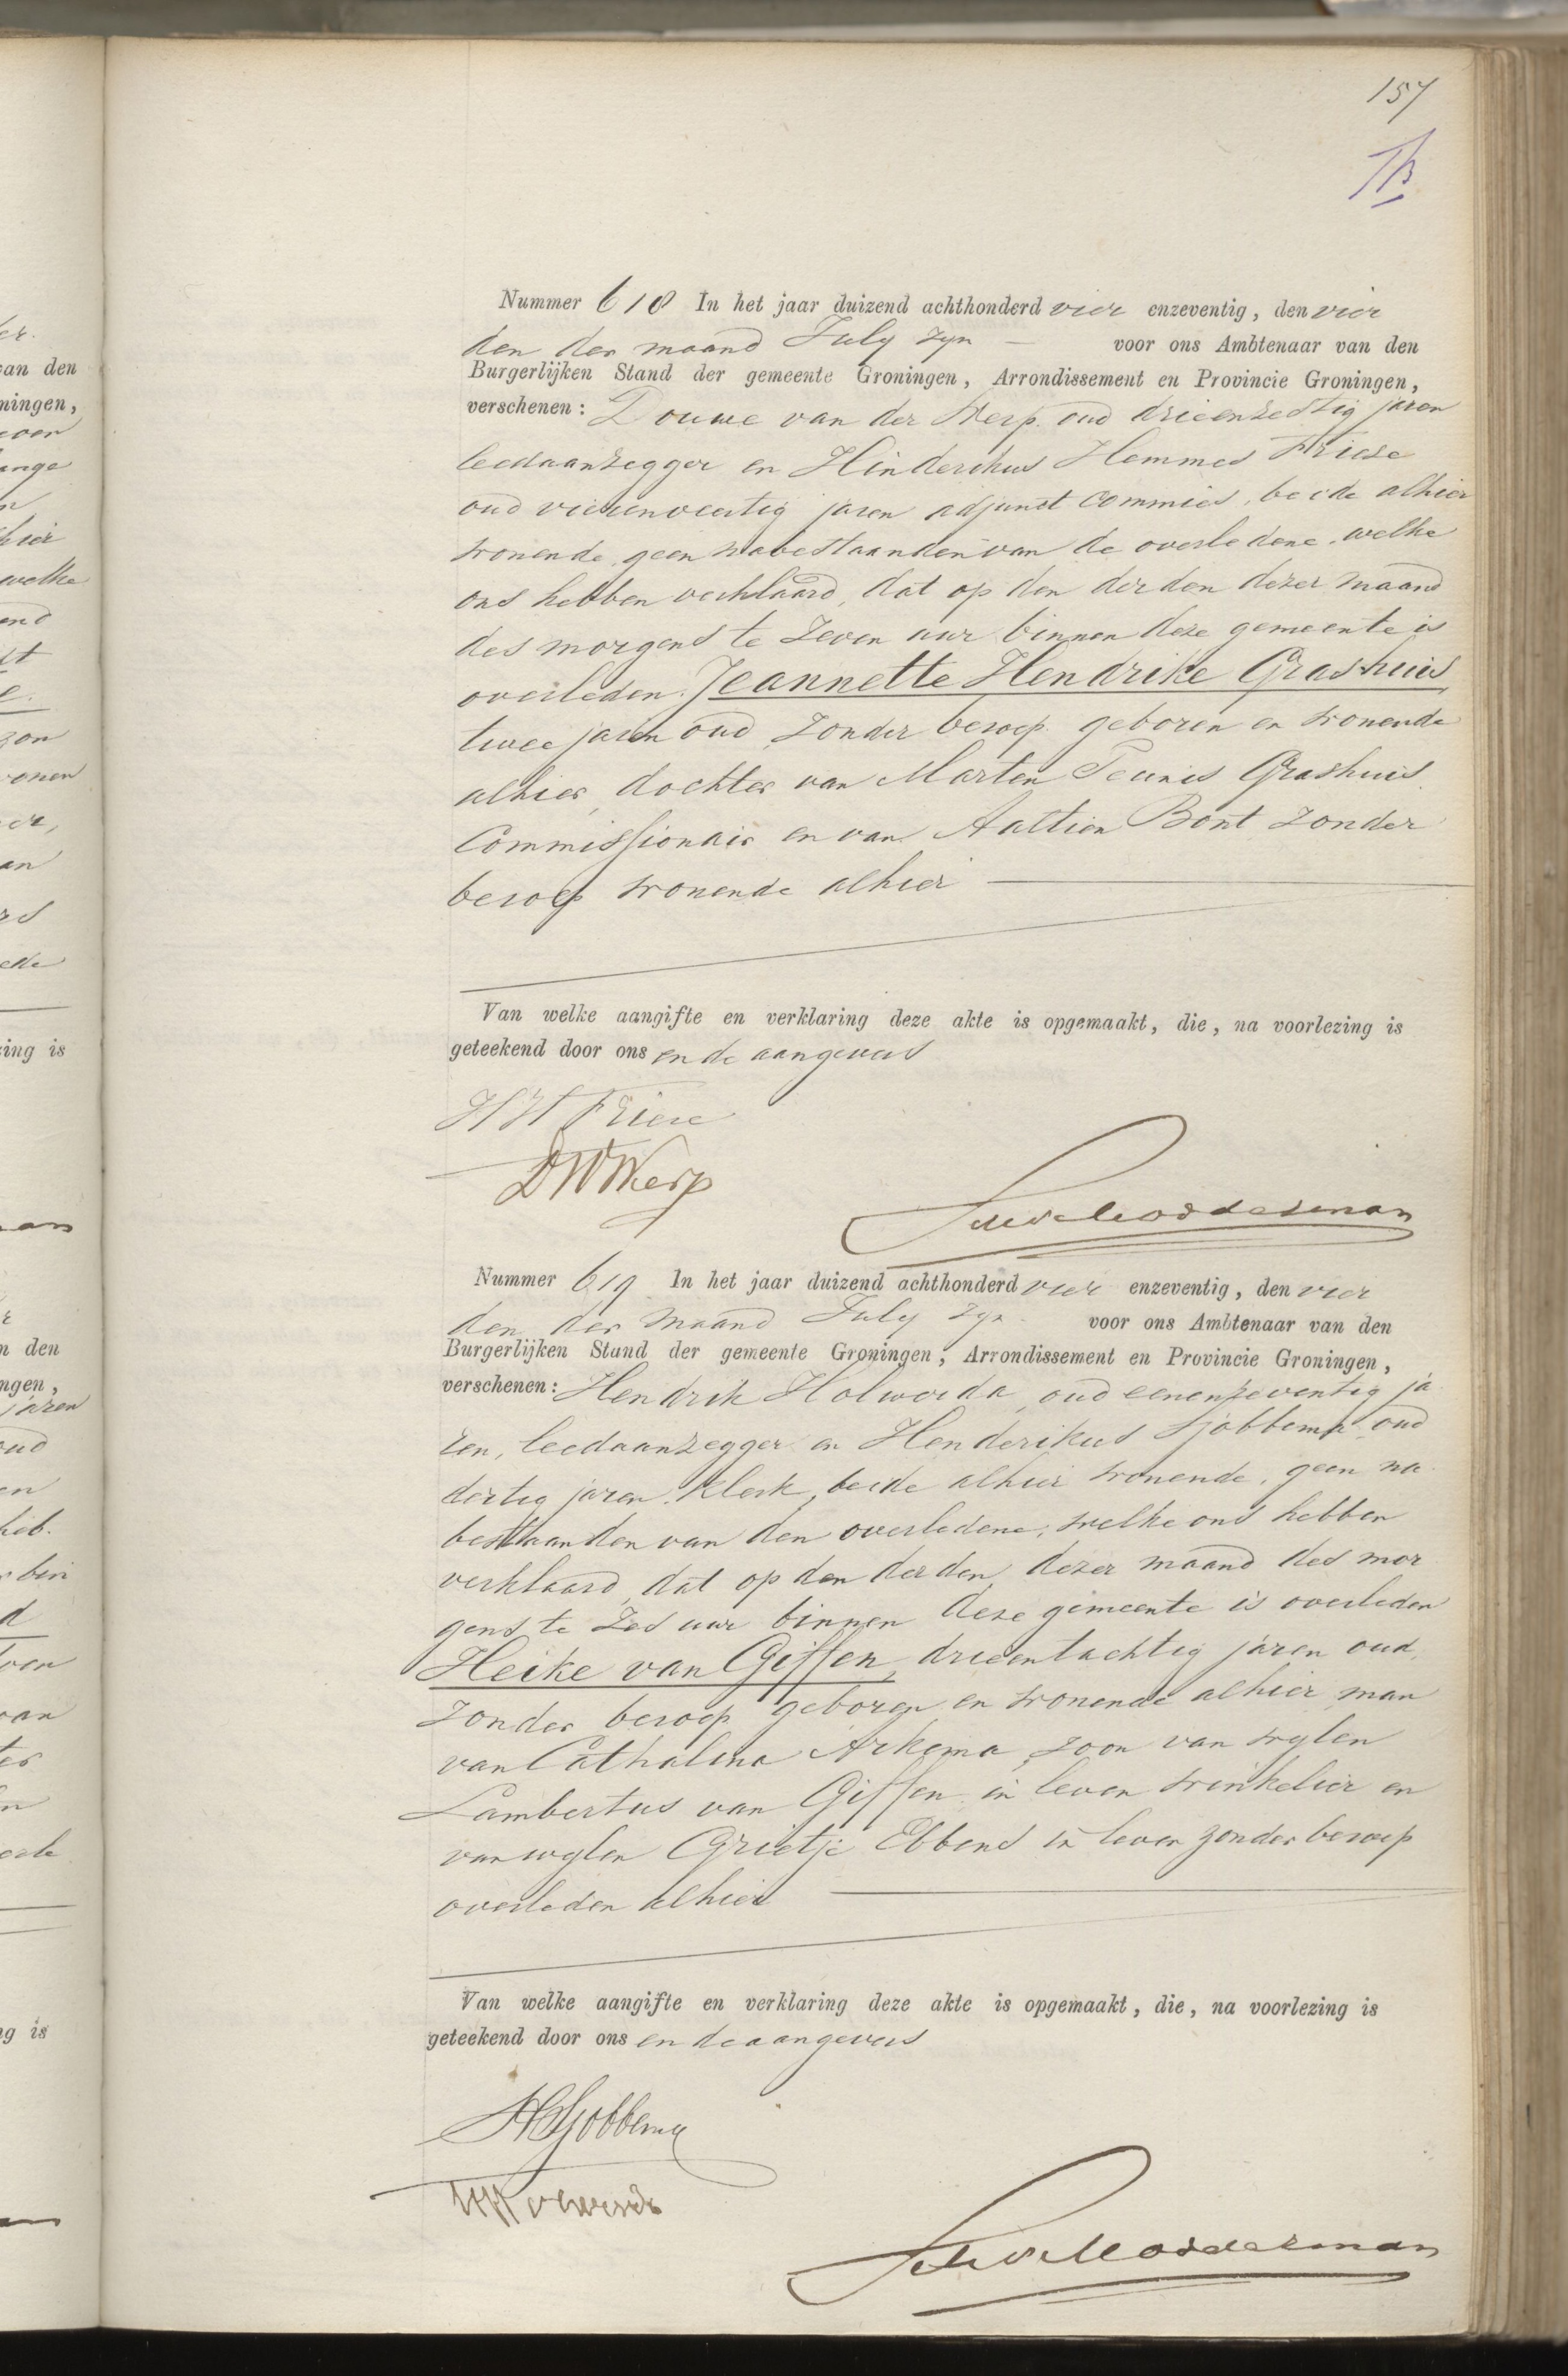 157
Nummer 618 In het jaar duizend achthonderd vier enzeventig, den vier
den der maand July zyn voor ons Ambtenaar van den
Burgerlijken Stand der gemeente Groningen, Arrondissement en Provincie Groningen,
verschenen: Douwe van der Werp oud drieenzestig jaren
leedaanzegger en Hinderikus Hemmes Frieze
oud vierenveertig jaren adjunct commies, beide alhier
wonende, geen nabestaanden van de overledene, welke
ons hebben verklaard, dat op den derden dezer maand
des morgens te zeven uur binnen deze gemeente is
overleden Jeannette Hendrike Grashuis
twee jaren oud, zonder beroep geboren en wonende
alhier, dochter van Marten Teunis Grashuis,
Commissionair en van Aaltien Bont zonder
beroep wonende alhier
Van welke aangifte en verklaring deze akte is opgemaakt, die, na voorlezing is
geteekend door ons en de aangevers
HH Frieze
DVWerp
Modderman
Nummer 619 In het jaar duizend achthonderd vier enzeventig, den vier
den der maand July zyn voor ons Ambtenaar van den
Burgerlijken Stand der gemeente Groningen, Arrondissement en Provincie Groningen,
verschenen: Hendrik Holwerda, oud eenenzeventig ja
ren, leedaanzegger en Henderikus Sjobbema oud
dertig jaren klerk, beide alhier wonende, geen na
bestaanden van den overledene, welke ons hebben
verklaard, dat op den derden dezer maand des mor
gens te zes uur binnen deze gemeente is overleden
Heike van Giffen, drieentachtig jaren oud,
zonder beroep geboren en wonende alhier, man
van Cathalina Arkema, zoon van wylen
Lambertus van Giffen in leven winkelier en
van wylen Grietje Ebbens in leven zonder beroep
overleden alhier
Van welke aangifte en verklaring deze akte is opgemaakt, die, na voorlezing is
geteekend door ons en de aangevers
H Sjobbema
H Holwerda
Modderman